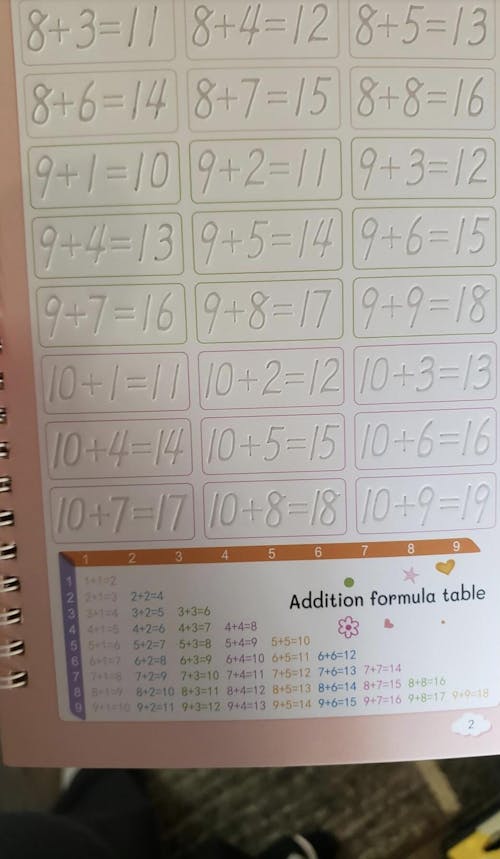 8+3=11 8+4=12 8+5=13
8+6=14 8+7=15 8+8=16
9+1=10 9+2=11 9+3=12
9+4=13 9+5=14 9+6=15
9+7=16 9+8=17 9+9=18
10+1=11 10+2=12 10+3=13
10+4=14 10+5=15 10+6=16
10+7=17 10+8=18 10+9=19
1 2 3 4 5 6 7 8 9
Addition formula table
1 1+1=2
2 2+1=3 2+2=4
3 3+1=4 3+2=5 3+3=6
4 4+1=5 4+2=6 4+3=7 4+4=8
5 5+1=6 5+2=7 5+3=8 5+4=9 5+5=10
6 6+1=7 6+2=8 6+3=9 6+4=10 6+5=11 6+6=12
7 7+1=8 7+2=9 7+3=10 7+4=11 7+5=12 7+6=13 7+7=14
8 8+1=9 8+2=10 8+3=11 8+4=12 8+5=13 8+6=14 8+7=15 8+8=16
9 9+1=10 9+2=11 9+3=12 9+4=13 9+5=14 9+6=15 9+7=16 9+8=17 9+9=18
2